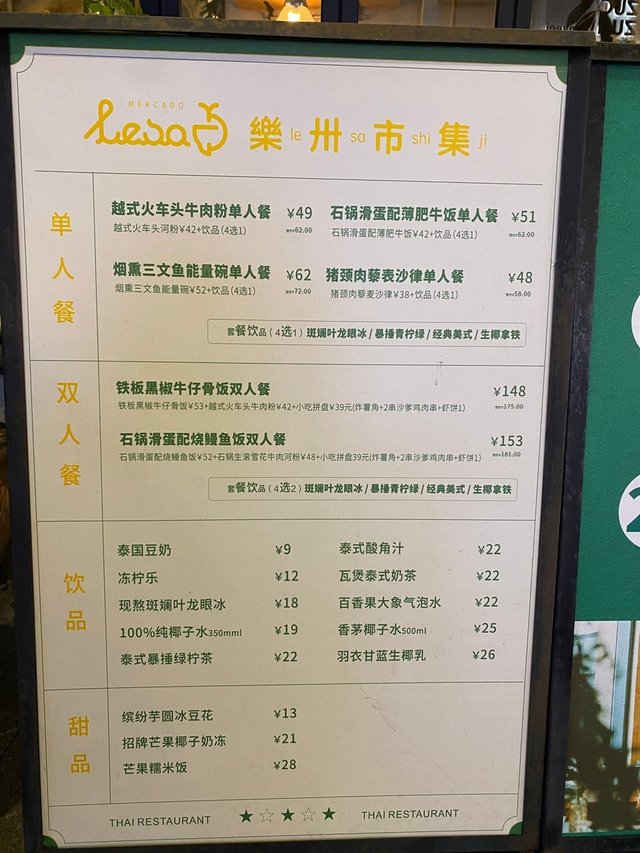 MERCADO
Lesa
樂 le 卅 sa 市 shi 集 ji
单人餐
越式火车头牛肉粉单人餐 ¥49
越式火车头河粉¥42+饮品(4选1) 62.00
石锅滑蛋配薄肥牛饭单人餐 ¥51
石锅滑蛋配薄肥牛饭¥42+饮品(4选1) 62.00
烟熏三文鱼能量碗单人餐 ¥62
烟熏三文鱼能量碗¥52+饮品(4选1) 72.00
猪颈肉藜表沙律单人餐 ¥48
猪颈肉藜麦沙律¥38+饮品(4选1) 58.00
套餐饮品(4选1) 斑斓叶龙眼冰/暴捶青柠绿/经典美式/生椰拿铁
双人餐
铁板黑椒牛仔骨饭双人餐 ¥148
铁板黑椒牛仔骨饭¥53+越式火车头牛肉粉¥42+小吃拼盘¥39元(炸薯角+2串沙爹鸡肉串+虾饼1) 175.00
石锅滑蛋配烧鳗鱼饭双人餐 ¥153
石锅滑蛋配烧鳗鱼饭¥52+石锅生滚雪花牛肉河粉¥48+小吃拼盘39元(炸薯角+2串沙爹鸡肉串+虾饼1) 181.00
套餐饮品(4选2) 斑斓叶龙眼冰/暴捶青柠绿/经典美式/生椰拿铁
饮品
泰国豆奶 ¥9
泰式酸角汁 ¥22
冻柠乐 ¥12
瓦煲泰式奶茶 ¥22
现熬斑斓叶龙眼冰 ¥18
百香果大象气泡水 ¥22
100%纯椰子水350mml ¥19
香茅椰子水500ml ¥25
泰式暴捶绿柠茶 ¥22
羽衣甘蓝生椰乳 ¥26
甜品
缤纷芋圆冰豆花 ¥13
招牌芒果椰子奶冻 ¥21
芒果糯米饭 ¥28
THAI RESTAURANT ★☆★☆★ THAI RESTAURANT